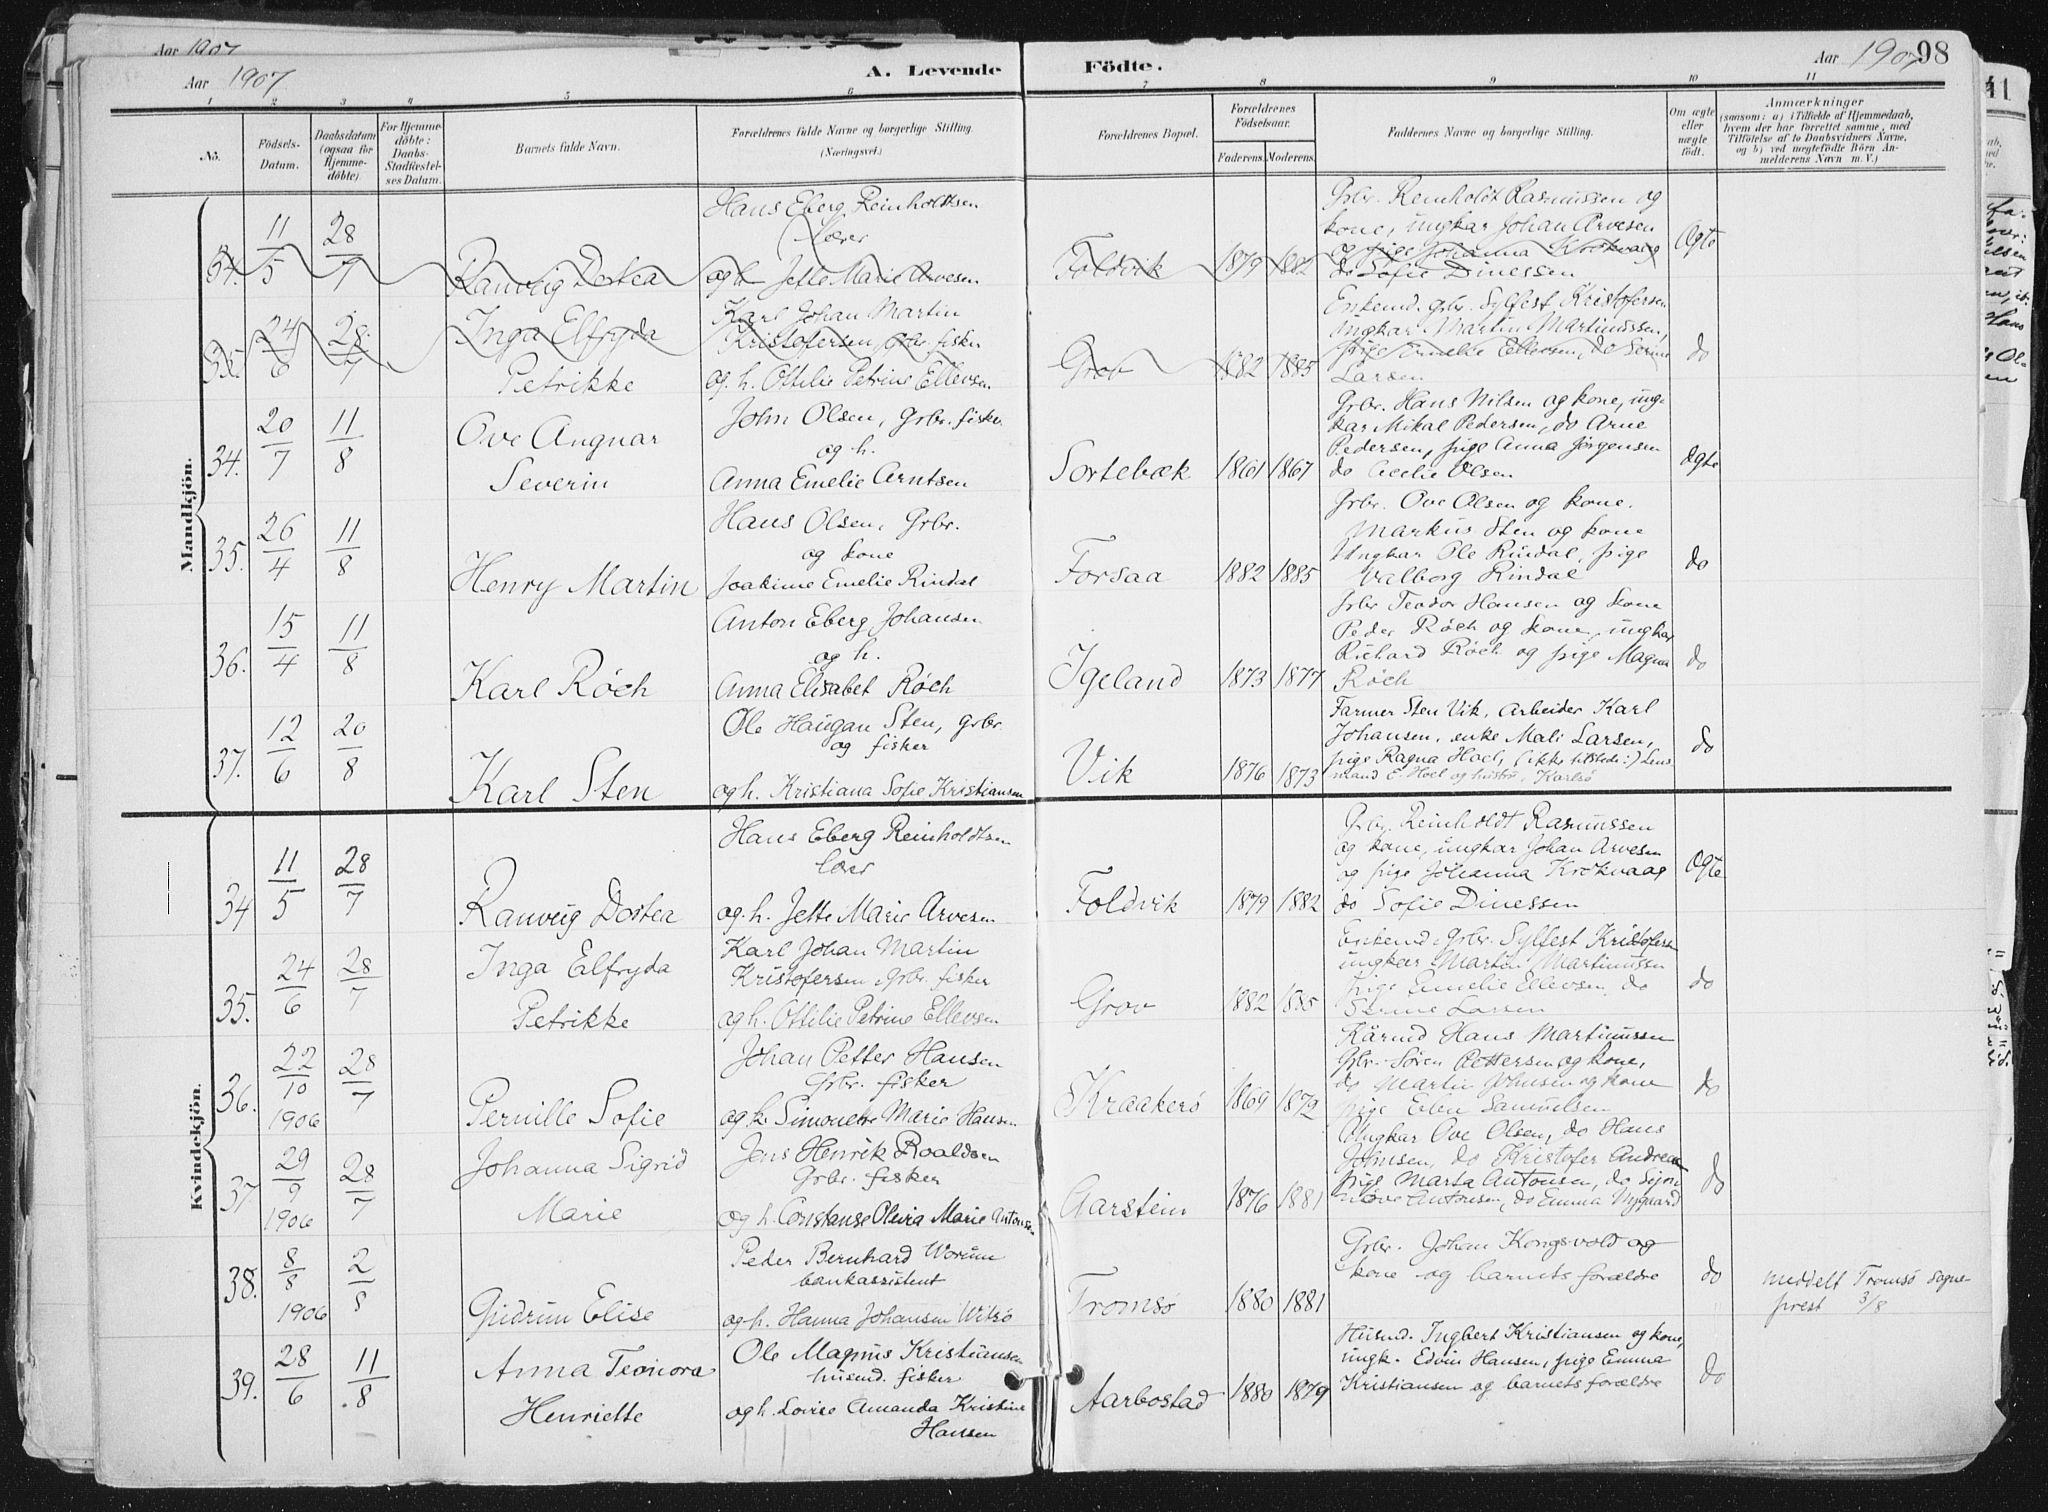 Aar 1907
Aar 1907
A. Levende Födte.
Aar 1907
98
1 2 3 4 5 6 7 8 9 10 11
No.
Födsels-Datum.
Daabsdatum (ogsaa for Hjemme-döbte).
For Hjemme-döbte: Daabs-Stadfæstel-ses Datum.
Barnets fulde Navn.
Forældrenes fulde Navne og borgerlige Stilling. (Næringsvei.)
Forældrenes Bopæl.
Forældrenes Födselsaar.
Faderens. Moderens.
Faddernes Navne og borgerlige Stilling.
Om ægte eller uægte födt.
Anmærkninger
(saasom: a) i Tilfælde af Hjemmedaab,
hvem der har forrettet samme, med
Tilföielse af to Daabsvidners Navne,
og b) ved uegtefödte Börn An-
melderens Navn m. V.)
Mandkjön.
34. 11/5 28/7 Ranveig Dortea
Hans Eberg Reinholdtsen
lærer
og h. Jette Marie Arvesen
Foldvik 1879 1882
Grbr. Reinholdt Rasmussen og
kone, ungkar Johan Arvesen
og pige Johanna Krokvaag
do Sofie Dinessen
Ægte
35. 24/6 28/7 Inga Elfryda
Petrikke
Karl Johan Martin
Kristofersen, grbr. fisker
og h. Ottilie Petrine Ellevsen
Grov 1882 1885
Enkemd. grbr. Sylfest Kristofersen
Ungkar Martin Martinussen,
pige Emelie Ellevsen, do Serine
Larsen
do
34. 20/7 11/8 Ove Angnar
Severin
John Olsen, Grbr. fisker
og h.
Anna Emelie Arntsen
Sortebæk 1861 1867
Grbr. Hans Nilsen og kone, ung-
kar Mikal Pedersen, do Arne
Pedersen, pige Anna Jørgensen
do Cecelie Olsen
Ægte
35. 26/4 11/8 Henry Martin
Hans Olsen, Grbr.
og kone
Joakime Emelie Rindal
Forsaa 1882 1885
Grbr. Ove Olsen og kone.
Markus Sten og kone
Ungkar Ole Rindal, pige
Valborg Rindal
do
36. 15/4 11/8 Karl Røch
Anton Eberg Johansen
og h.
Anna Elisabet Røch
Igeland 1873 1877
Grbr Teodor Hansen og kone
Peder Røch og kone, ungkar
Richard Røch og pige Magna
Røch
do
37. 12/6 20/8 Karl Sten
Ole Haugan Sten, grbr.
og fisker
og h. Kristiana Sofie Kristiansen
Vik 1876 1873
Farmer Sten Vik, Arbeider Karl
Johansen, enke Mali Larsen,
pige Ragna Hoel, (ikke tilstede:) Lens
mand E. Hoel og hustru, Karlsö
do
Kvindekjön.
34 11/5 28/7 Ranveig Dortea
Hans Eberg Reinholdtsen
lærer
og h. Jette Marie Arvesen
Foldvik 1879 1882
Grbr. Reinholdt Rasmussen
og kone, ungkar Johan Arvesen
og pige Johanna Krokvaag
do Sofie Dinessen
Ægte
35. 24/6 28/7 Inga Elfryda
Petrikke
Karl Johan Martin
Kristofersen, Grbr. fisker
og h. Ottilie Petrine Ellevsen
Grov 1882 1885
Enkemd. grbr. Sylfest Kristofersen
ungkar Martin Martinussen
pige Emelie Ellevsen, do
Serine Larsen
do
36. 22/10 1906 28/7 Pernille Sofie
Johan Petter Hansen
Grbr. fisker
og h. Simonette Marie Hansen
Kraakerö 1869 1872
Kårmd Hans Martinussen
Grbr. Søren Pettersen og kone,
do Martin Johnsen og kone
pige Ellen Samuelsen
do
37 29/9 1906 28/7 Johanna Sigrid
Marie
Jens Henrik Roaldsen
Grbr. fisker
og h. Constanse Olivia Marie Antonsen
Aarstein 1876 1881
Ungkar Ove Olsen, do Hans
Johnsen, do Kristofer Andreas
pige Marta Antonsen, do
Antonsen, do Emma Nygaard
do
38. 8/8 1906 2/8 Gudrun Elise
Peder Bernhard Worum
bankassistent
og h. Hanna Johansen Witsö
Tromsö 1880 1881
Grbr. Johan Kongsvold og
kone og barnets forældre
do
meddelt Tromsö Sogne-
prest 3/8
39. 28/6 11/8 Anna Teonora
Henriette
Ole Magnus Kristiansen
husmd. fisker
og h. Lovise Amanda Kristine
Hansen
Aarbostad 1880 1879
Husmd. Ingbert Kristiansen og kone,
ungk. Edvin Hansen, pige Emma
Kristiansen og barnets forældre
do